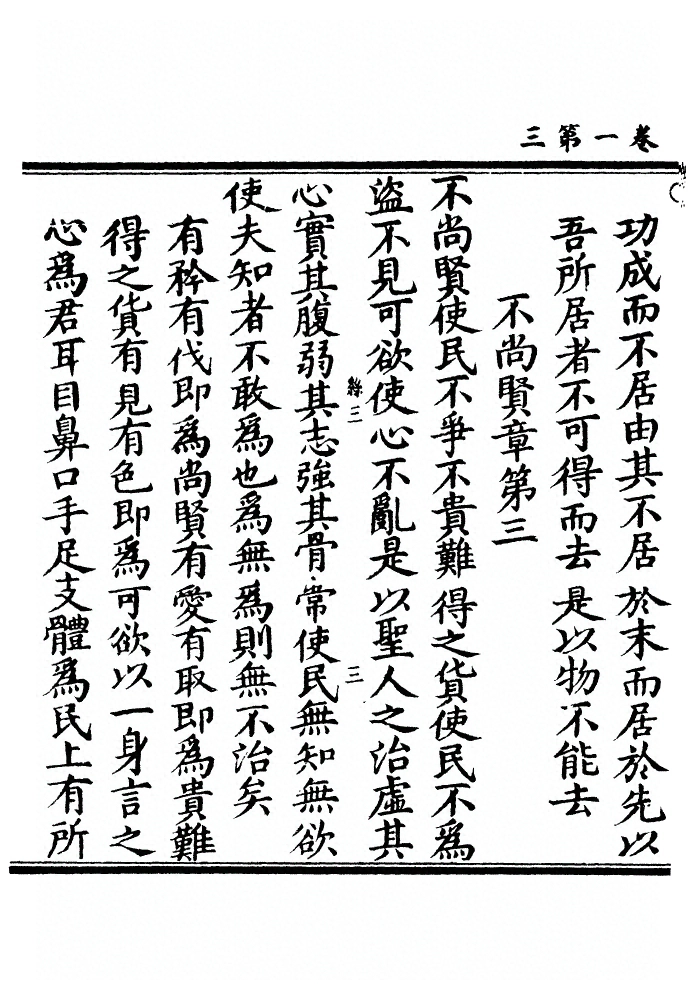 卷一第三
功成而不居由其不居於末而居於先以
吾所居者不可得而去是以物不能去
不尚賢章第三
不尚賢使民不爭不貴難得之貨使民不為
盜不見可欲使心不亂是以聖人之治虛其
緜三
三
心實其腹弱其志強其骨常使民無知無欲
使夫知者不敢為也為無為則無不治矣
有矜有伐即為尚賢有愛有取即為貴難
得之貨有見有色即為可欲以一身言之
心為君耳目鼻口手足支體為民上有所